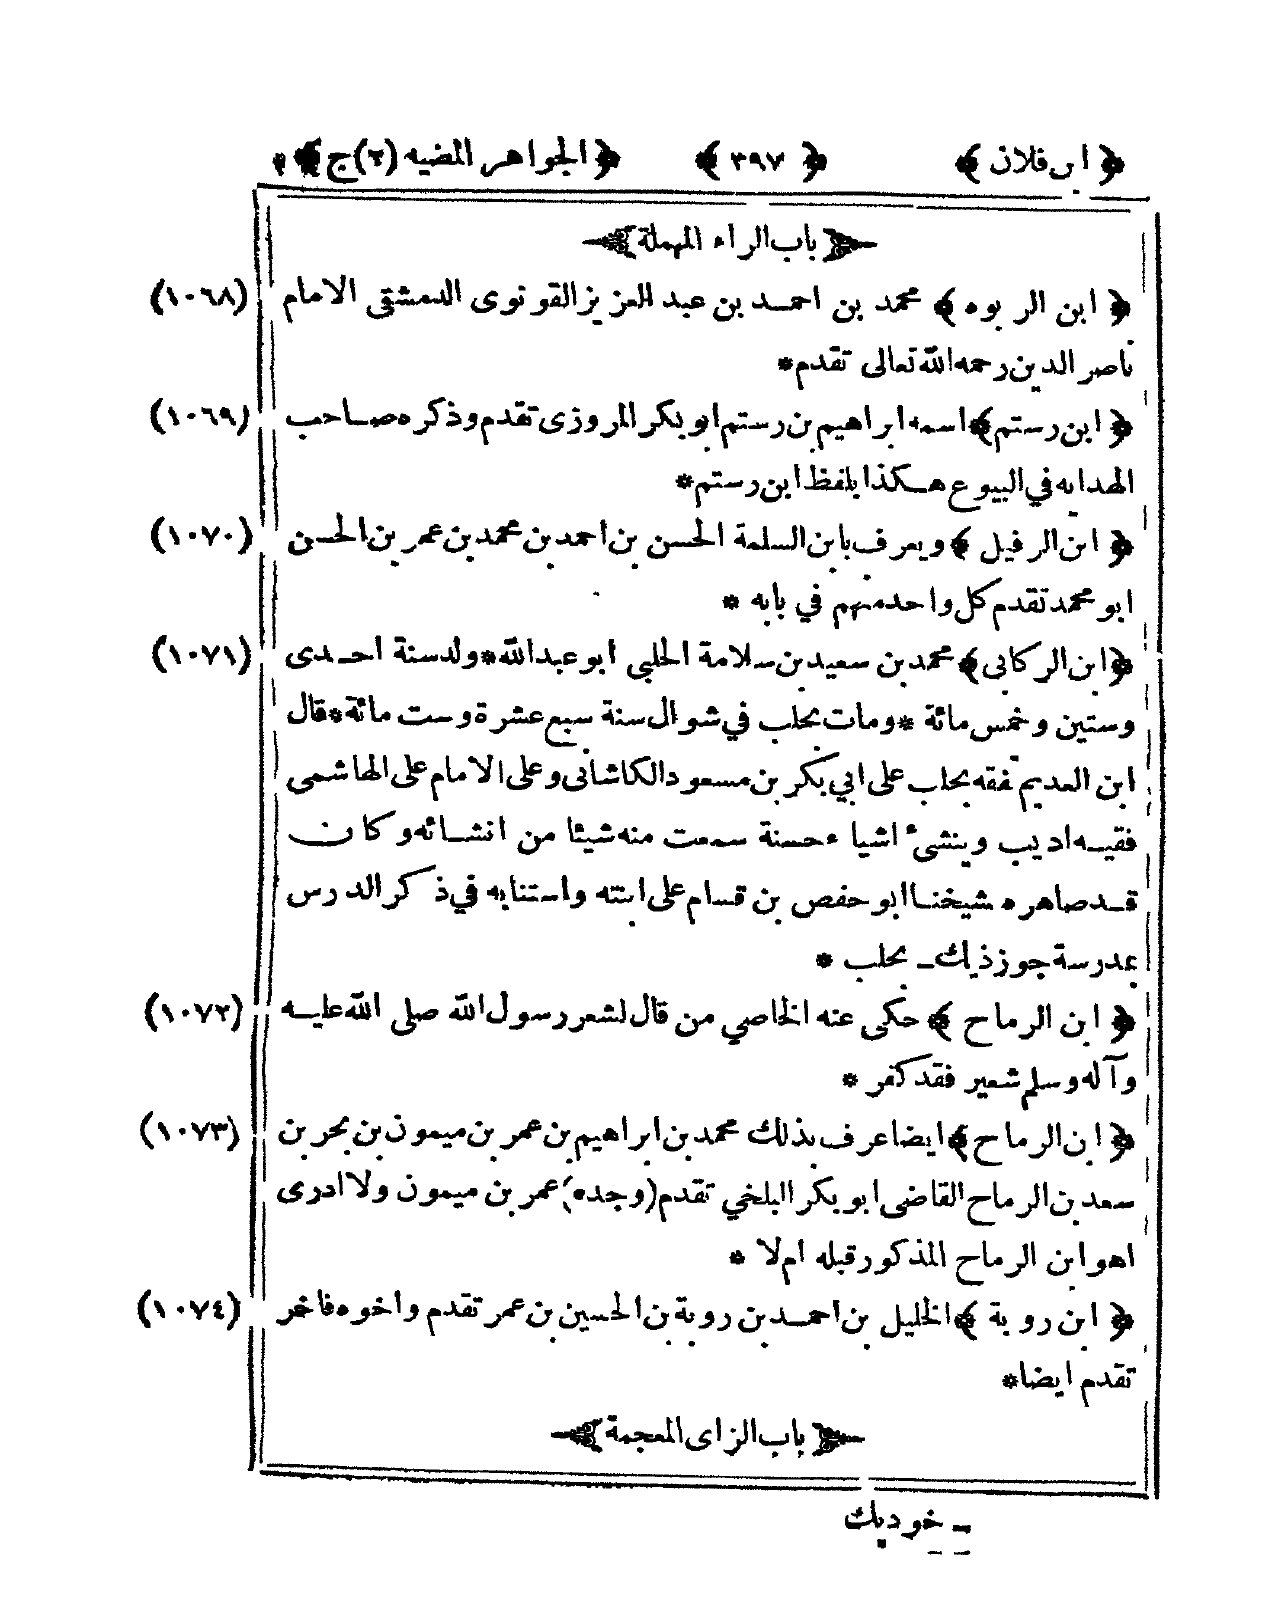 ﴿ ابن فلان ﴾ ﴿ ٣٩٧ ﴾ ﴿ الجواهر المضيه (٢) ج ﴾
باب الراء المهملة
﴿ ابن الربوه ﴾ محمد بن احمد بن عبد العزيز القونوى الدمشقى الامام (١٠٦٨)
ناصر الدين رحمه الله تعالى تقدم*
﴿ ابن رستم ﴾ اسمه ابراهيم بن رستم ابو بكر المروزى تقدم وذكره صاحب (١٠٦٩)
الهدايه في البيوع هكذا بلفظ ابن رستم*
﴿ ابن الرفيل ﴾ ويعرف بابن السلمة الحسن بن احمد بن محمد بن عمر بن الحسن (١٠٧٠)
ابو محمد تقدم كل واحد منهم في بابه *
﴿ ابن الركابى ﴾ محمد بن سعيد بن سلامة الحلبي ابو عبد الله*ولد سنة احدى (١٠٧١)
وستين وخمس مائة *ومات بحلب في شوال سنة سبع عشرة وست مائة*قال
ابن العديم تفقه بحلب على ابي بكر بن مسعود الكاشانى وعلى الامام على الهاشمى
فقيه اديب وينشئ اشياء حسنة سمعت منه شيئا من انشائه وكان
قد صاهره شيخنا ابو حفص بن قسام على ابنته واستنابه في ذكر الدرس
بمدرسة جوزذيك ـ بحلب *
﴿ ابن الرماح ﴾ حكى عنه الخاصي من قال لشعر رسول الله صلى الله عليه (١٠٧٢)
وآله وسلم شعير فقد كفر *
﴿ ابن الرماح ﴾ ايضا عرف بذلك محمد بن ابراهيم بن عمر بن ميمون بن بحر بن (١٠٧٣)
سعد بن الرماح القاضى ابو بكر البلخي تقدم (وجده) عمر بن ميمون ولا ادرى
اهو ابن الرماح المذكور قبله ام لا *
﴿ ابن روبة ﴾ الخليل بن احمد بن روبة بن الحسين بن عمر تقدم واخوه فاخر (١٠٧٤)
تقدم ايضا*
باب الزاى المعجمة
ـ خوديك